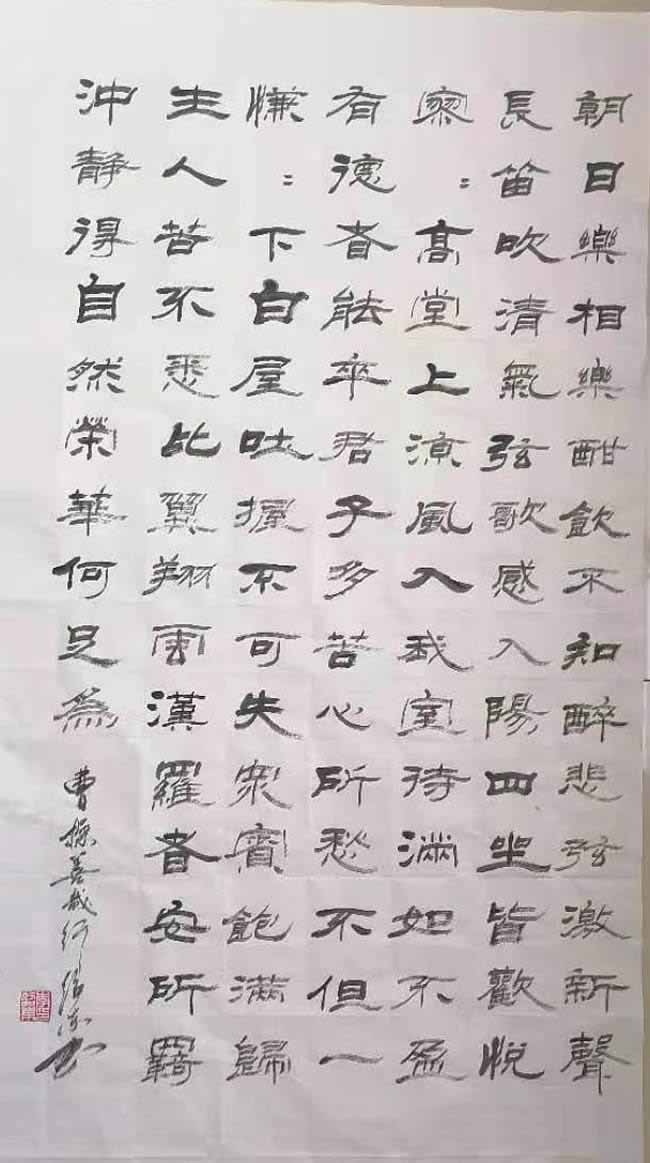 朝日樂相樂酣飲不知醉悲弦激新聲
長笛吹清氣弦歌感入陽四坐皆歡悅
寥：高堂上涼風入我室待滿如不盈
有德者能卒君子多苦心所愁不但一
慊：下白屋吐握不可失眾賓飽滿歸
生人苦不悉比翼翔雲漢羅者安所羈
沖靜得自然榮華何足為
曹操善哉行